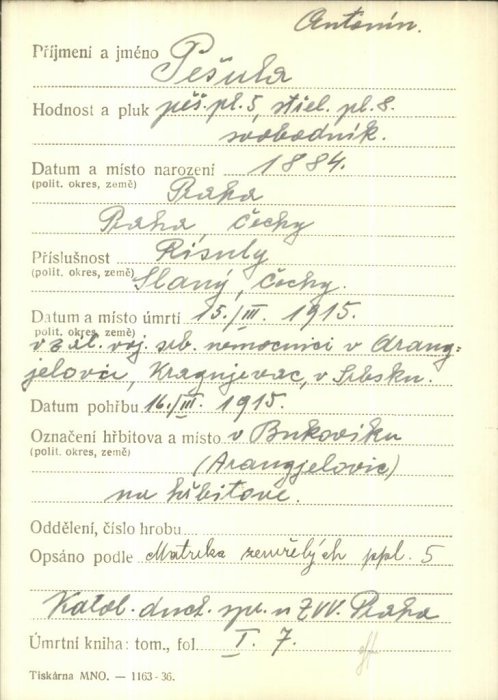 Antonín.
Příjmení a jméno Pešula
Hodnost a pluk pěš. pl. 5, střel. pl. 8.
svobodník.
Datum a místo narození 1884.
(polit. okres, země) Praha
Praha, Čechy
Příslušnost Řisuty
(polit. okres, země) Slaný, Čechy.
Datum a místo úmrtí 15./III. 1915.
polit. okres, země)
v zál. voj. srb. nemocnici v Arang-
jelovci, Kragujevac, v Srbsku.
Datum pohřbu 16./III. 1915.
Označení hřbitova a místo v Bukoviku
(polit. okres, země) (Arangjelovic)
na hřbitově.
Oddělení, číslo hrobu
Opsáno podle Matrika zemřelých ppl. 5
Katol. duch. spr. u ZVV. Praha
Úmrtní kniha: tom., fol. I. 7.
Tiskárna MNO. — 1163-36.